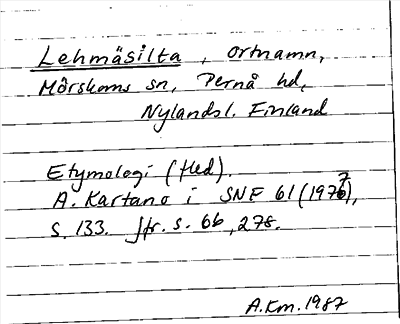 Lehmäsilta, ortnamn,
Mörskoms sn, Pernå hd,
Nylandsl. Finland
Etymologi (fled).
A. Kartano i SNF 61 (1977),
s. 133. Jfr. s. 66, 278.
A.Km. 1987